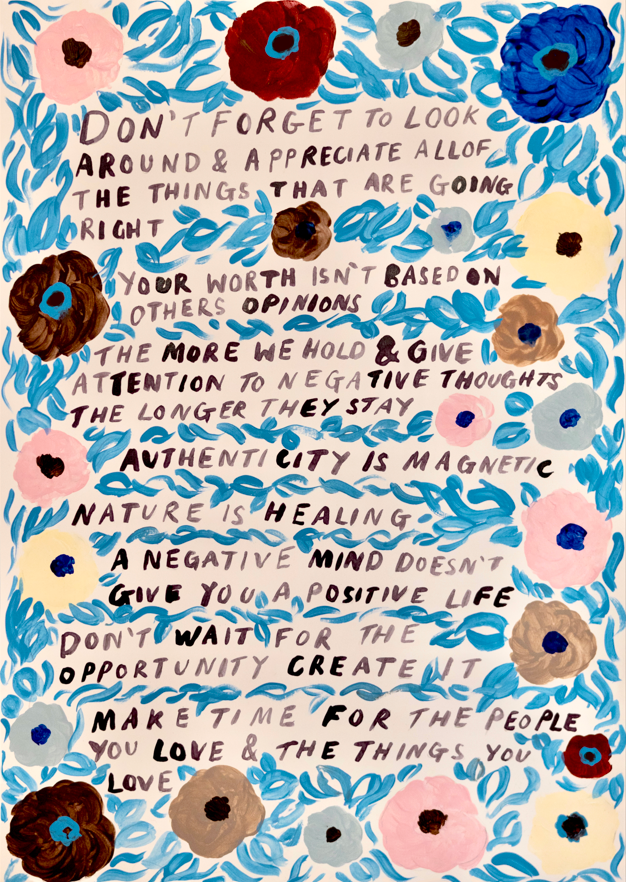 DON'T FORGET TO LOOK
AROUND & APPRECIATE ALL OF
THE THINGS THAT ARE GOING
RIGHT
YOUR WORTH ISN'T BASED ON
OTHERS OPINIONS
THE MORE WE HOLD & GIVE
ATTENTION TO NEGATIVE THOUGHTS
THE LONGER THEY STAY
AUTHENTICITY IS MAGNETIC
NATURE IS HEALING
A NEGATIVE MIND DOESN'T
GIVE YOU A POSITIVE LIFE
DON'T WAIT FOR THE
OPPORTUNITY CREATE IT
MAKE TIME FOR THE PEOPLE
YOU LOVE & THE THINGS YOU
LOVE